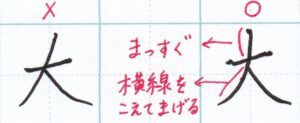 × ○
まっすぐ
大 大
横線を
こえてまげる